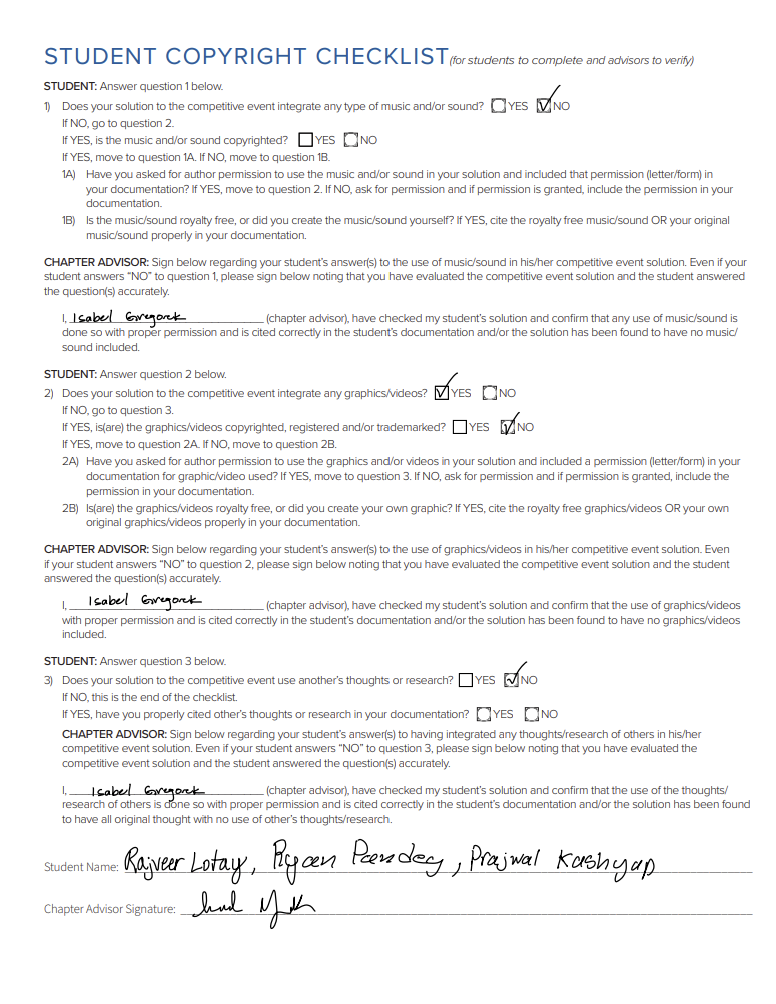 STUDENT COPYRIGHT CHECKLIST (for students to complete and advisors to verify)
STUDENT: Answer question 1 below.
1) Does your solution to the competitive event integrate any type of music and/or sound? YES NO
If NO, go to question 2.
If YES, is the music and/or sound copyrighted? YES NO
If YES, move to question 1A. If NO, move to question 1B.
1A) Have you asked for author permission to use the music and/or sound in your solution and included that permission (letter/form) in
your documentation? If YES, move to question 2. If NO, ask for permission and if permission is granted, include the permission in your
documentation.
1B) Is the music/sound royalty free, or did you create the music/sound yourself? If YES, cite the royalty free music/sound OR your original
music/sound properly in your documentation.
CHAPTER ADVISOR: Sign below regarding your student's answer(s) to the use of music/sound in his/her competitive event solution. Even if your
student answers “NO” to question 1, please sign below noting that you have evaluated the competitive event solution and the student answered
the question(s) accurately.
I, Isabel Gregorek (chapter advisor), have checked my student's solution and confirm that any use of music/sound is
done so with proper permission and is cited correctly in the student's documentation and/or the solution has been found to have no music/
sound included.
STUDENT: Answer question 2 below.
2) Does your solution to the competitive event integrate any graphics/videos? YES NO
If NO, go to question 3.
If YES, is(are) the graphics/videos copyrighted, registered and/or trademarked? YES NO
If YES, move to question 2A. If NO, move to question 2B.
2A) Have you asked for author permission to use the graphics and/or videos in your solution and included a permission (letter/form) in your
documentation for graphic/video used? If YES, move to question 3. If NO, ask for permission and if permission is granted, include the
permission in your documentation.
2B) Is(are) the graphics/videos royalty free, or did you create your own graphic? If YES, cite the royalty free graphics/videos OR your own
original graphics/videos properly in your documentation.
CHAPTER ADVISOR: Sign below regarding your student's answer(s) to the use of graphics/videos in his/her competitive event solution. Even
if your student answers “NO” to question 2, please sign below noting that you have evaluated the competitive event solution and the student
answered the question(s) accurately.
I, Isabel Gregorek (chapter advisor), have checked my student's solution and confirm that the use of graphics/videos
with proper permission and is cited correctly in the student's documentation and/or the solution has been found to have no graphics/videos
included.
STUDENT: Answer question 3 below.
3) Does your solution to the competitive event use another's thoughts or research? YES NO
If NO, this is the end of the checklist.
If YES, have you properly cited other's thoughts or research in your documentation? YES NO
CHAPTER ADVISOR: Sign below regarding your student's answer(s) to having integrated any thoughts/research of others in his/her
competitive event solution. Even if your student answers “NO” to question 3, please sign below noting that you have evaluated the
competitive event solution and the student answered the question(s) accurately.
I, Isabel Gregorek (chapter advisor), have checked my student's solution and confirm that the use of the thoughts/
research of others is done so with proper permission and is cited correctly in the student's documentation and/or the solution has been found
to have all original thought with no use of other's thoughts/research.
Student Name: Rajveer Lotay, Ryan Pandey, Prajwal Kashyap
Chapter Advisor Signature: